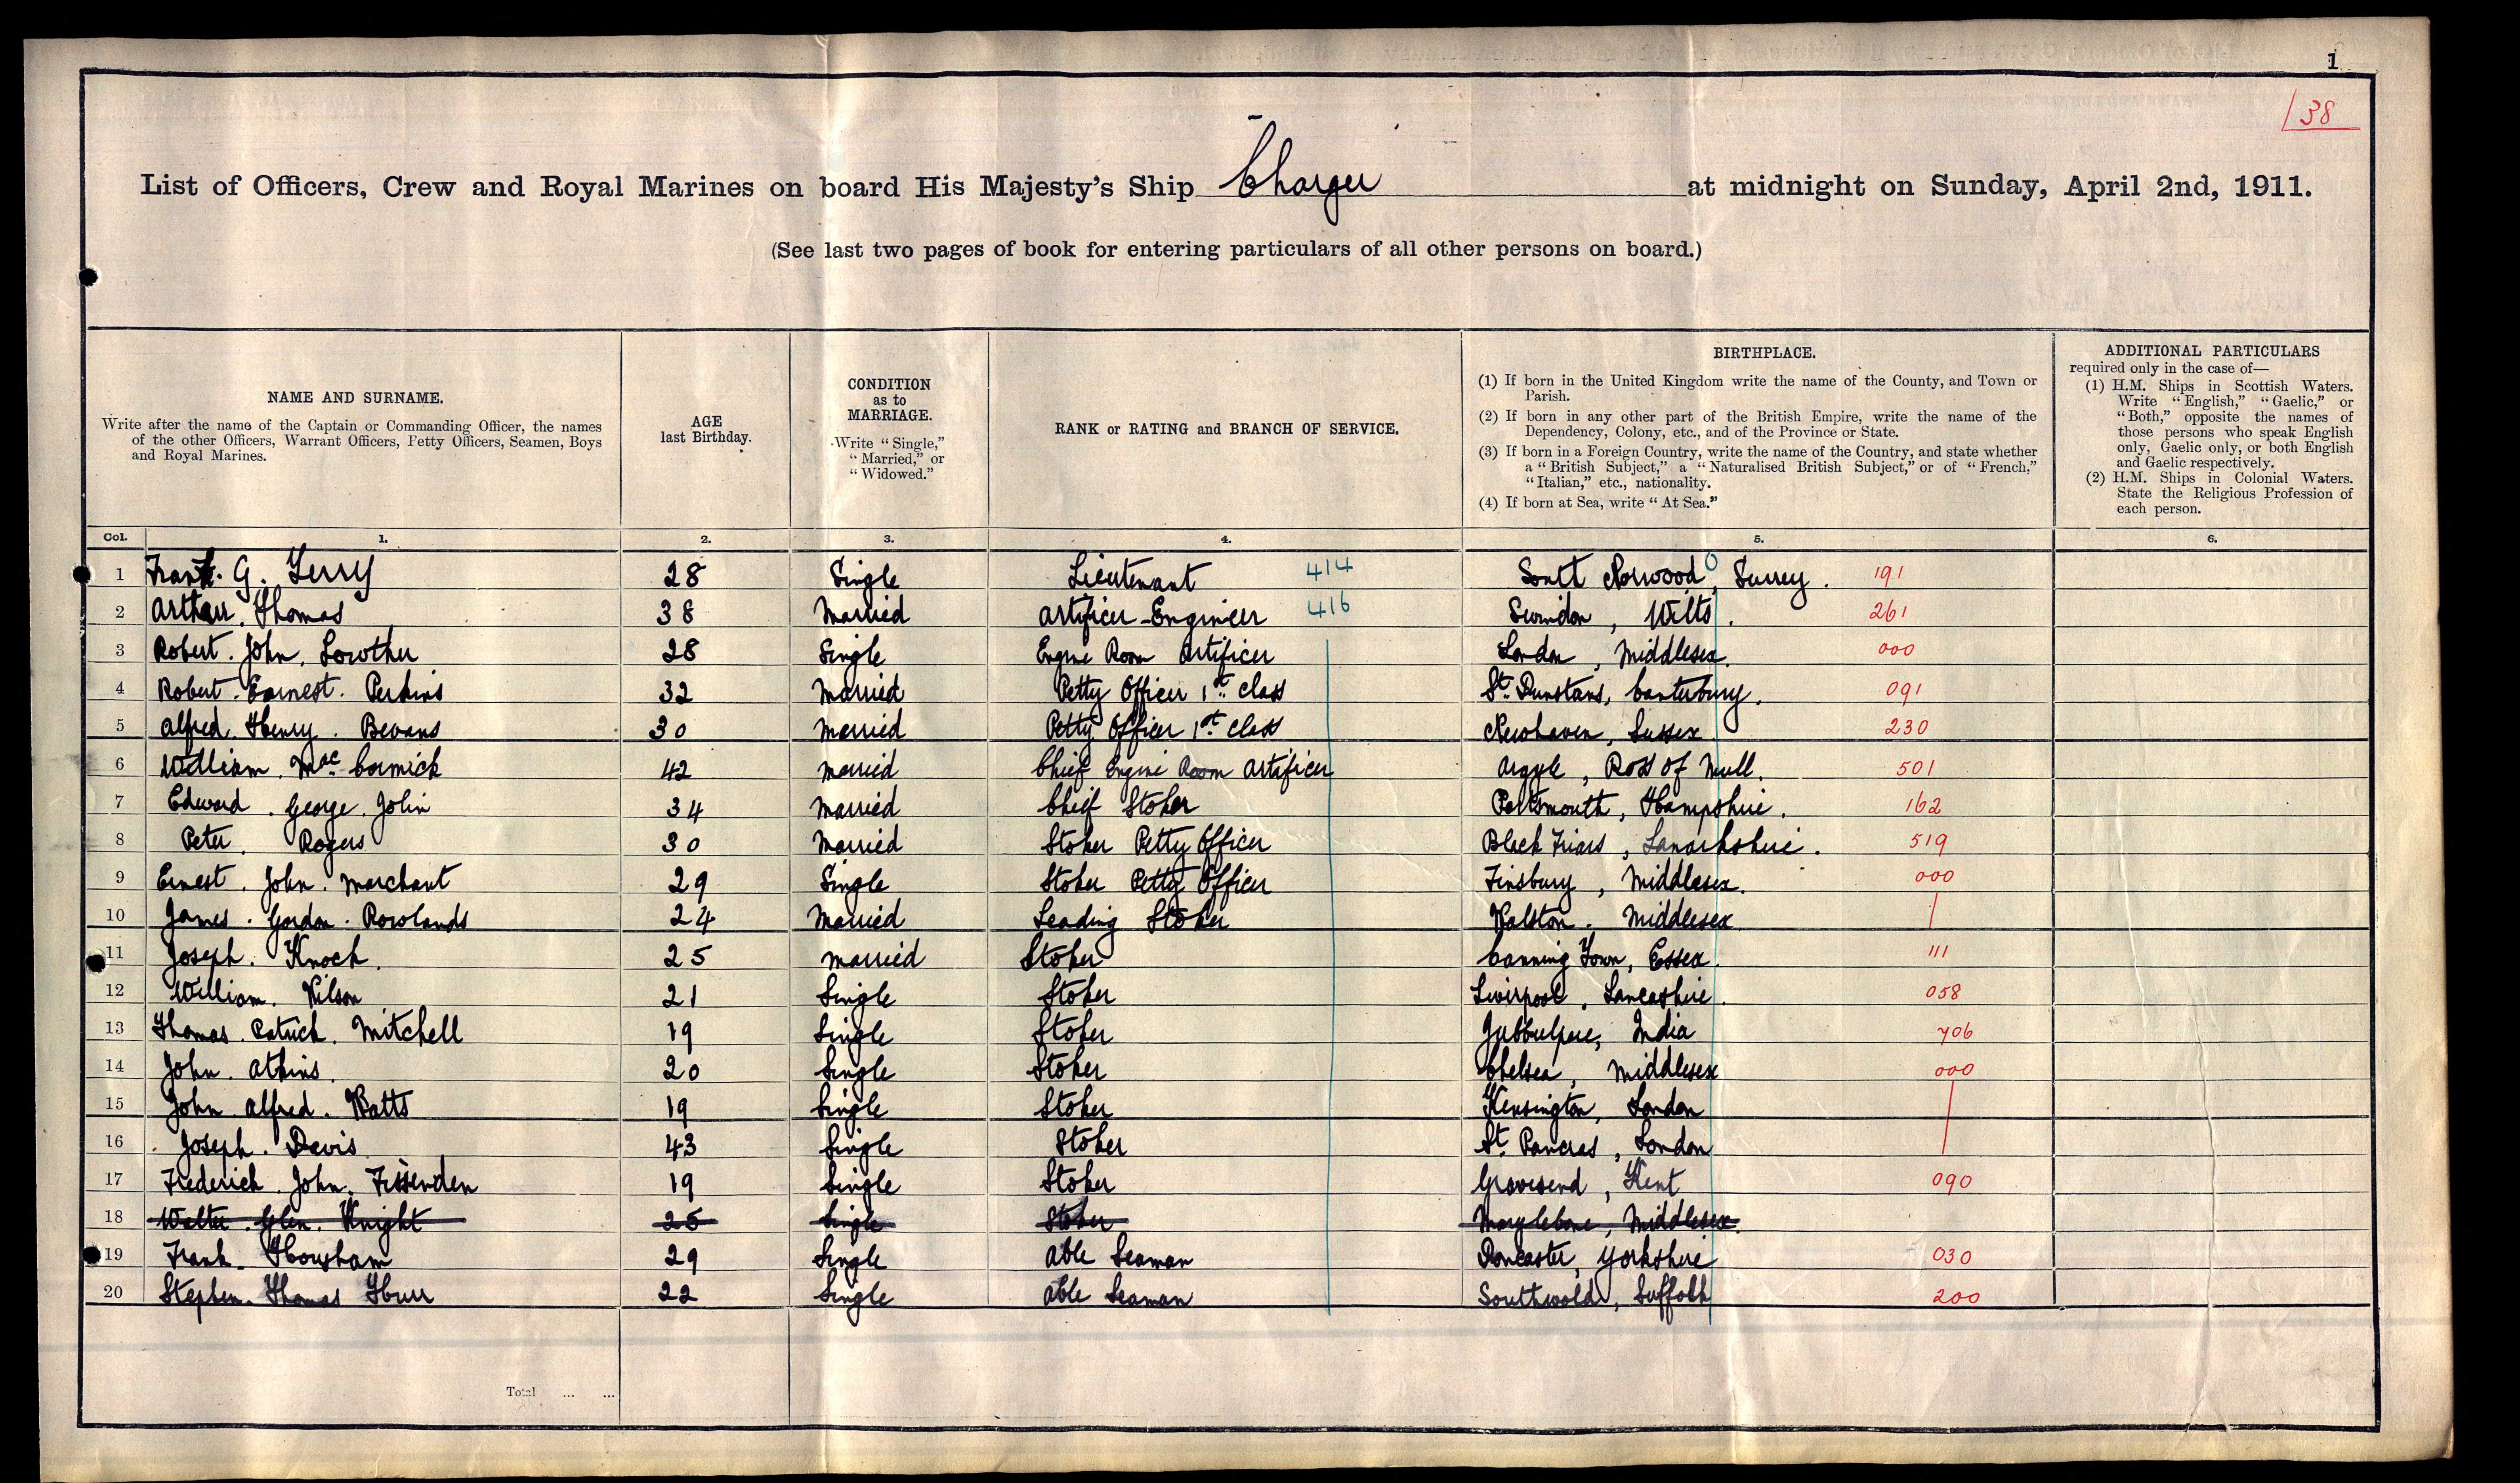 1
38
List of Officers, Crew and Royal Marines on board His Majesty's Ship Charger at midnight on Sunday, April 2nd, 1911.
(See last two pages of book for entering particulars of all other persons on board.)
NAME AND SURNAME.
Write after the name of the Captain or Commanding Officer, the names
of the other Officers, Warrant Officers, Petty Officers, Seamen, Boys
and Royal Marines.
AGE
last Birthday.
CONDITION
as to
MARRIAGE.
Write "Single,"
"Married," or
"Widowed."
RANK or RATING and BRANCH OF SERVICE.
BIRTHPLACE.
(1) If born in the United Kingdom write the name of the County, and Town or
Parish.
(2) If born in any other part of the British Empire, write the name of the
Dependency, Colony, etc., and of the Province or State.
(3) If born in a Foreign Country, write the name of the Country, and state whether
a "British Subject," a "Naturalised British Subject," or of "French,"
"Italian," etc., nationality.
(4) If born at Sea, write "At Sea."
ADDITIONAL PARTICULARS
required only in the case of—
(1) H.M. Ships in Scottish Waters.
Write "English," "Gaelic," or
"Both," opposite the names of
those persons who speak English
only, Gaelic only, or both English
and Gaelic respectively.
(2) H.M. Ships in Colonial Waters.
State the Religious Profession of
each person.
Col. 1. 2. 3. 4. 5. 6.
1 Frank. G. Terry 28 Single Lieutenant 414 South Norwood, Surrey. 191
2 Arthur. Thomas 38 Married Artificer-Engineer 416 Swindon, Wilts. 261
3 Robert. John. Lowther 28 Single Engine Room Artificer London, Middlesex. 000
4 Robert. Earnest. Perkins 32 Married Petty Officer 1st class St. Dunstans, Canterbury. 091
5 Alfred. Henry. Bevans 30 Married Petty Officer 1st class Newhaven, Sussex 230
6 William. Mac Cormick 42 Married Chief Engine Room Artificer Argyle, Ross of Mull. 501
7 Edward. George. John 34 Married Chief Stoker Portsmouth, Hampshire. 162
8 Peter. Rogers 30 Married Stoker Petty Officer Black Friars, Lanarkshire. 519
9 Ernest. John. Marchant 29 Single Stoker Petty Officer Finsbury, Middlesex. 000
10 James. Gordon. Rowlands 24 Married Leading Stoker Middlesex
11 Joseph. Knock. 25 Married Stoker Canning Town, Essex. 111
12 William. Wilson 21 Single Stoker Liverpool, Lancashire. 058
13 Thomas. Patrick. Mitchell 19 Single Stoker Jubbulpore, India 706
14 John. Atkins. 20 Single Stoker Chelsea, Middlesex 000
15 John Alfred. Watts 19 Single Stoker Kensington, London
16 Joseph. Davis 43 Single Stoker St. Pancras, London
17 Frederick. John. Fissenden 19 Single Stoker Gravesend, Kent 090
18 Walter. Glen. Knight 25 Single Stoker Marylebone, Middlesex.
19 Frank. Howsham 29 Single Able Seaman Doncaster, Yorkshire 030
20 Stephen. Thomas Hurr 22 Single Able Seaman Southwold, Suffolk 200
Total ... ...